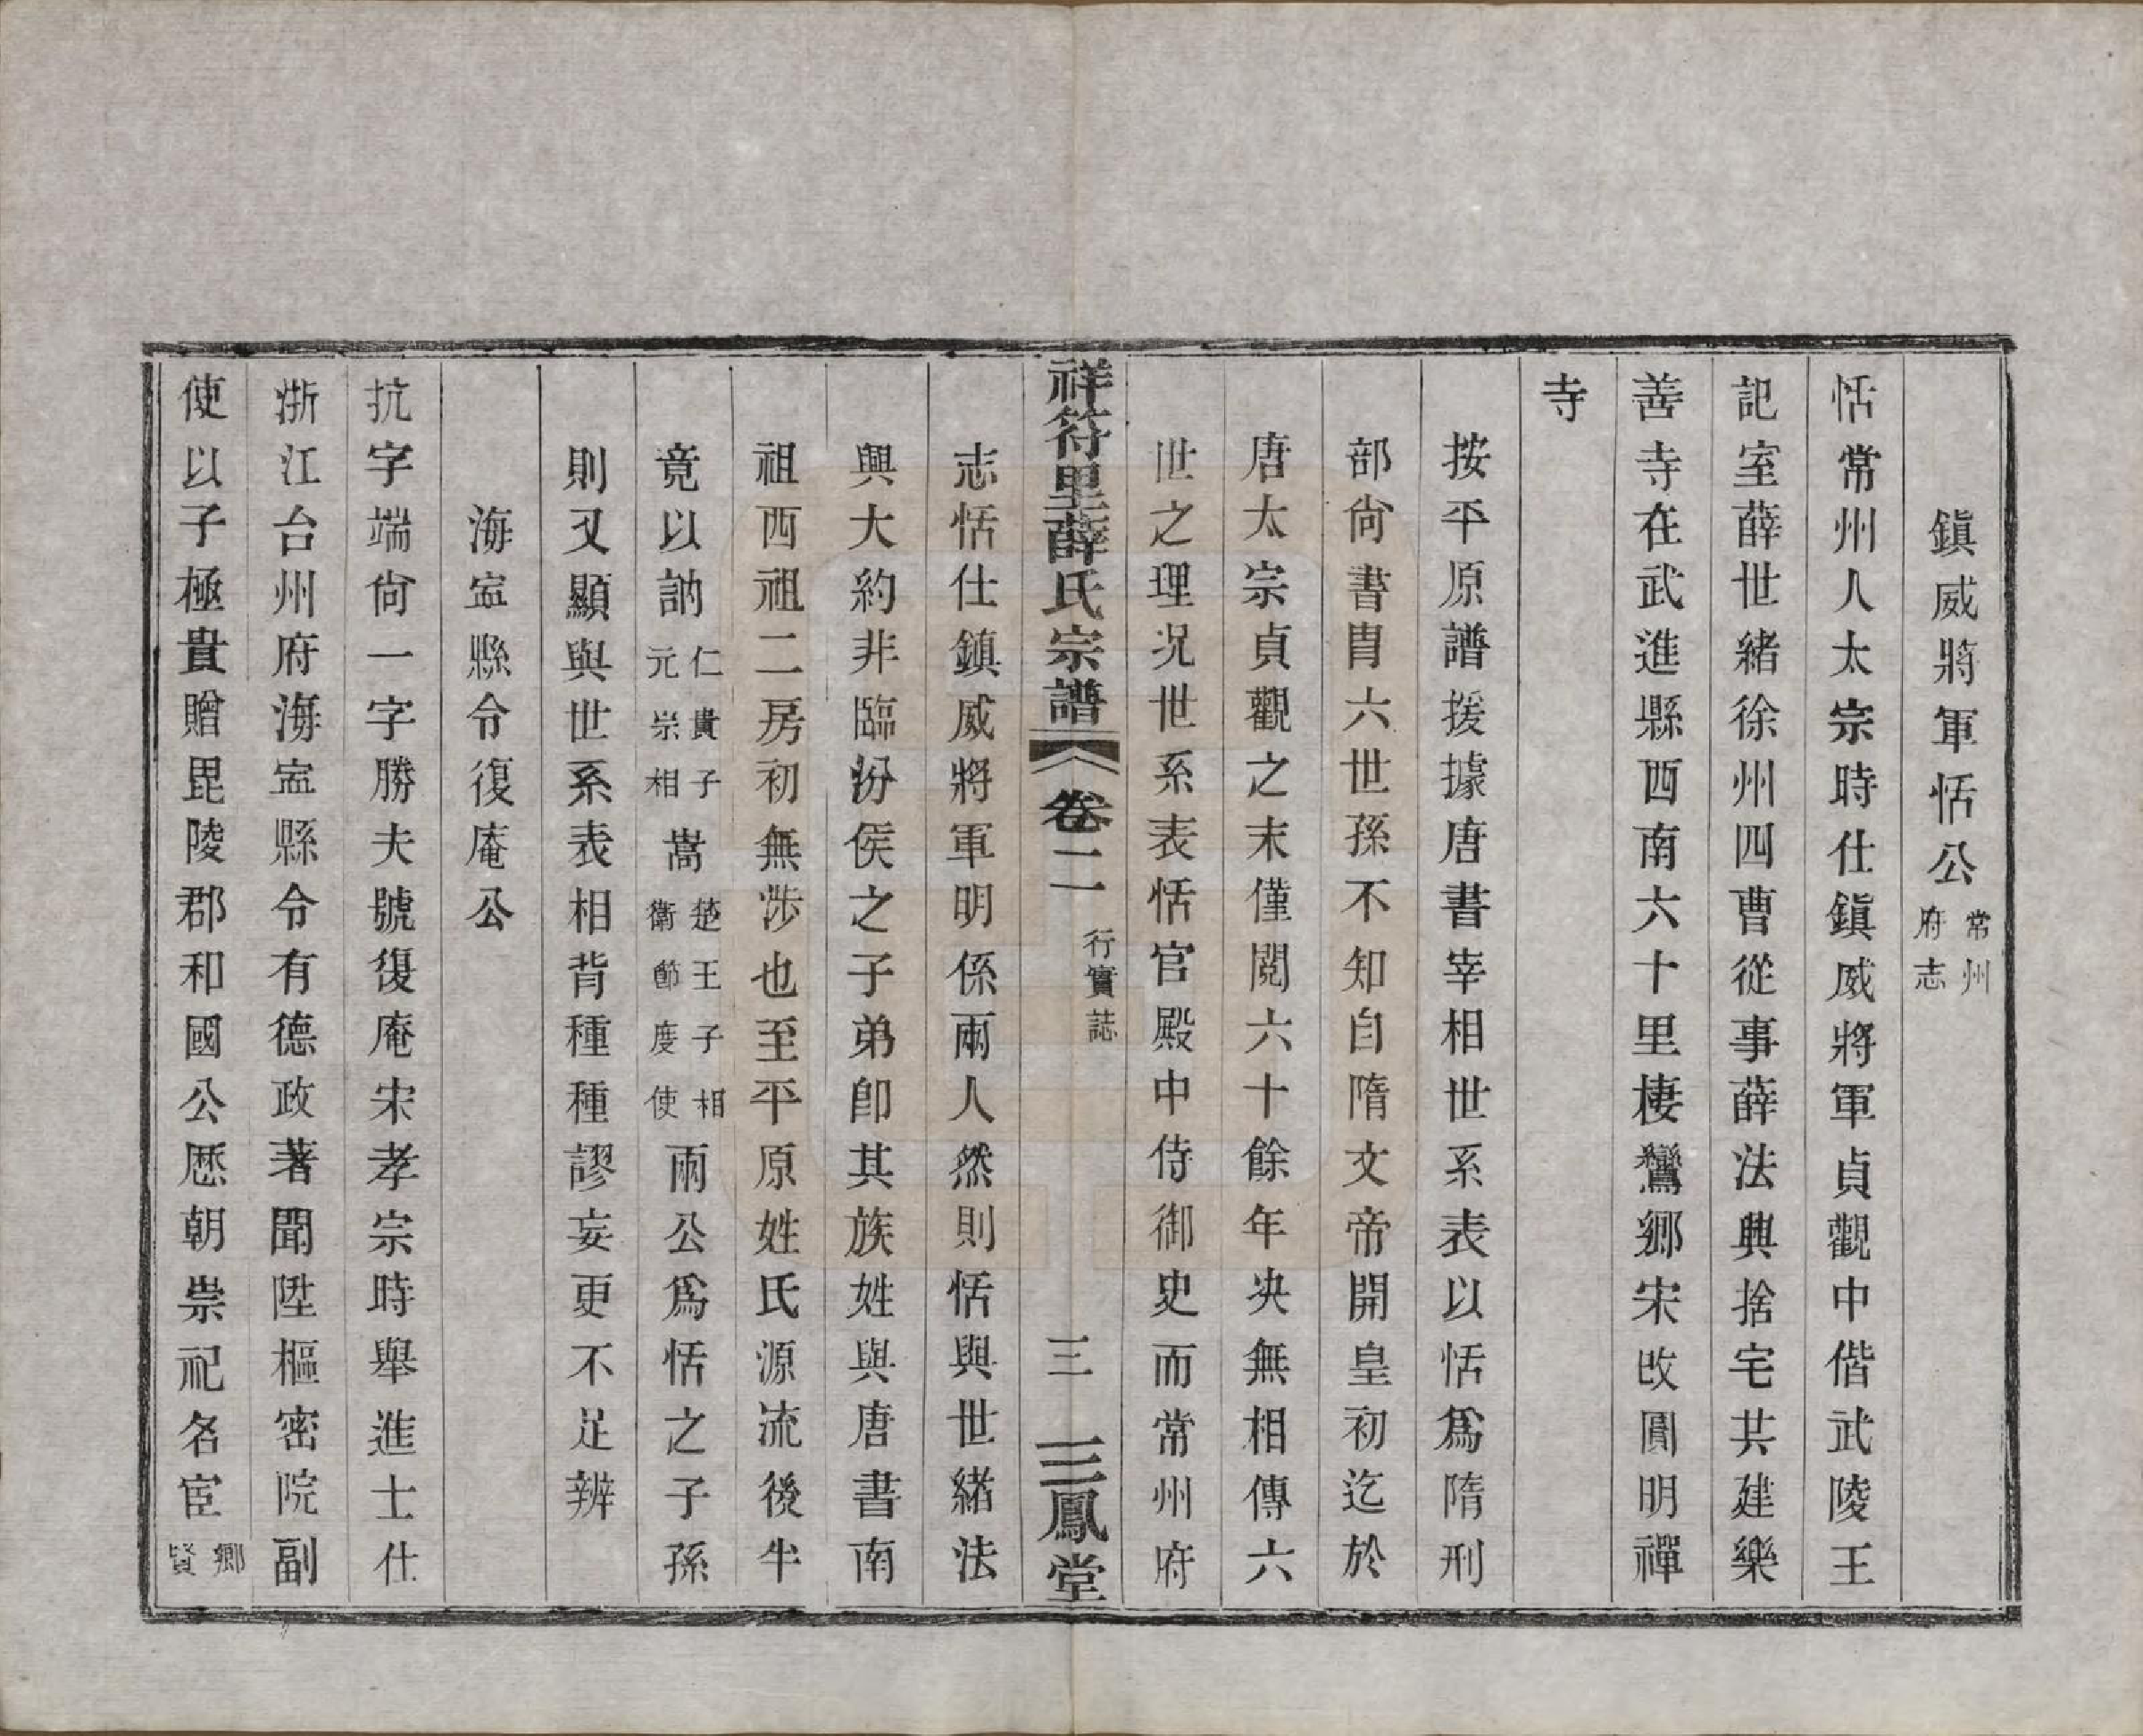 鎮威將軍恬公常州府志
恬常州人太宗時仕鎮威將軍貞觀中偕武陵王
記室薛世緒徐州四曹從事薛法興捨宅共建樂
善寺在武進縣西南六十里棲鸞鄉宋改圓明禪
寺
按平原譜援據唐書宰相世系表以恬爲隋刑
部尙書胄六世孫不知自隋文帝開皇初迄於
唐太宗貞觀之末僅閱六十餘年决無相傳六
世之理况世系表恬官殿中侍御史而常州府
祥符里薛氏宗譜 卷二 行實誌 三 三鳳堂
志恬仕鎮威將軍明係兩人然則恬與世緒法
興大約非臨汾侯之子弟卽其族姓與唐書南
祖西祖二房初無涉也至平原姓氏源流後半
竟以訥仁貴子元崇相嵩楚王子相衛節度使兩公爲恬之子孫
則又顯與世系表相背種種謬妄更不足辨
海寍縣令復庵公
抗字端尙一字勝夫號復庵宋孝宗時舉進士仕
浙江台州府海寍縣令有德政著聞陞樞密院副
使以子極貴贈毘陵郡和國公歷朝崇祀名宦鄉賢